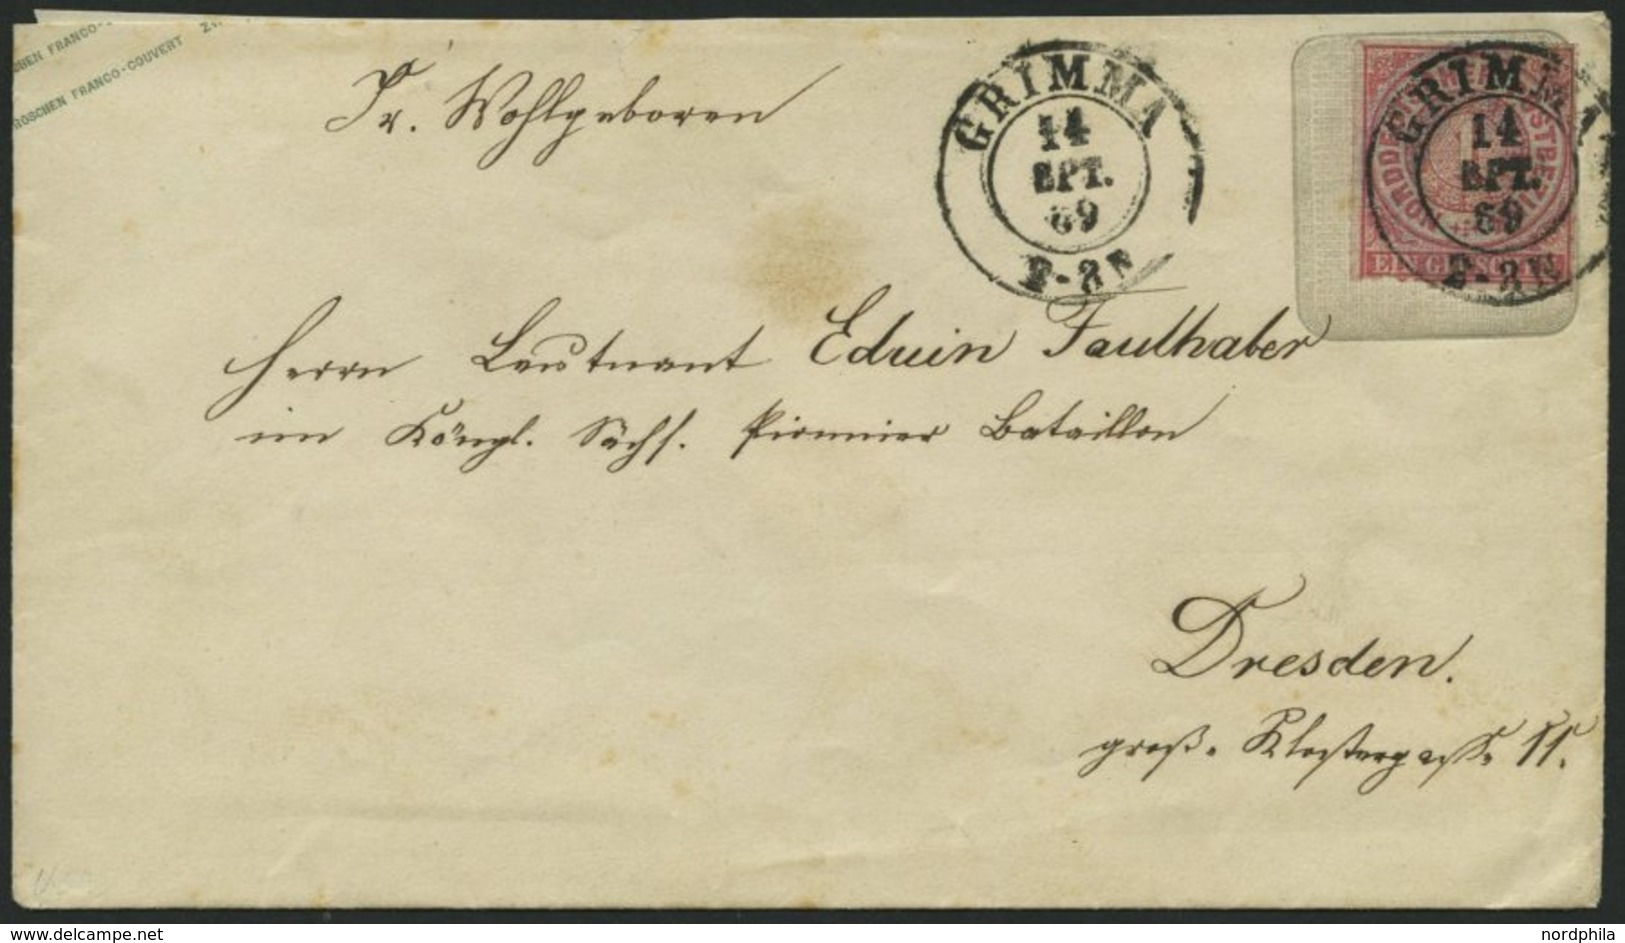 CHEN FRANCO-
ROSCHEN FRANCO-COUVERT ZW
Sr. Wohlgeboren
GRIMMA
14
SPT.
69
GRIMMA
14
SPT.
69
EIN GROSCHEN
Herrn Leutnant Eduin Faulhaber
im Königl. Sächs. Pionnier Bataillon
Dresden.
groß. Klostergasse 11.
www.delcampe.net
nordphila